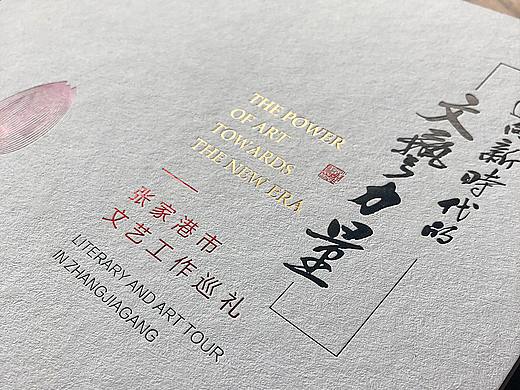 向新時代的
文藝力量
THE POWER
OF ART
TOWARDS
THE NEW ERA
张家港市
文艺工作巡礼
LITERARY AND ART TOUR
IN ZHANGJIAGANG